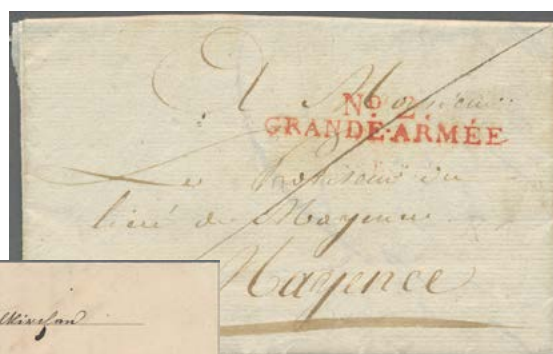 A Monsieur
No 2.
GRANDE·ARMÉE
Le Proviseur du
licé de Mayence
Mayence